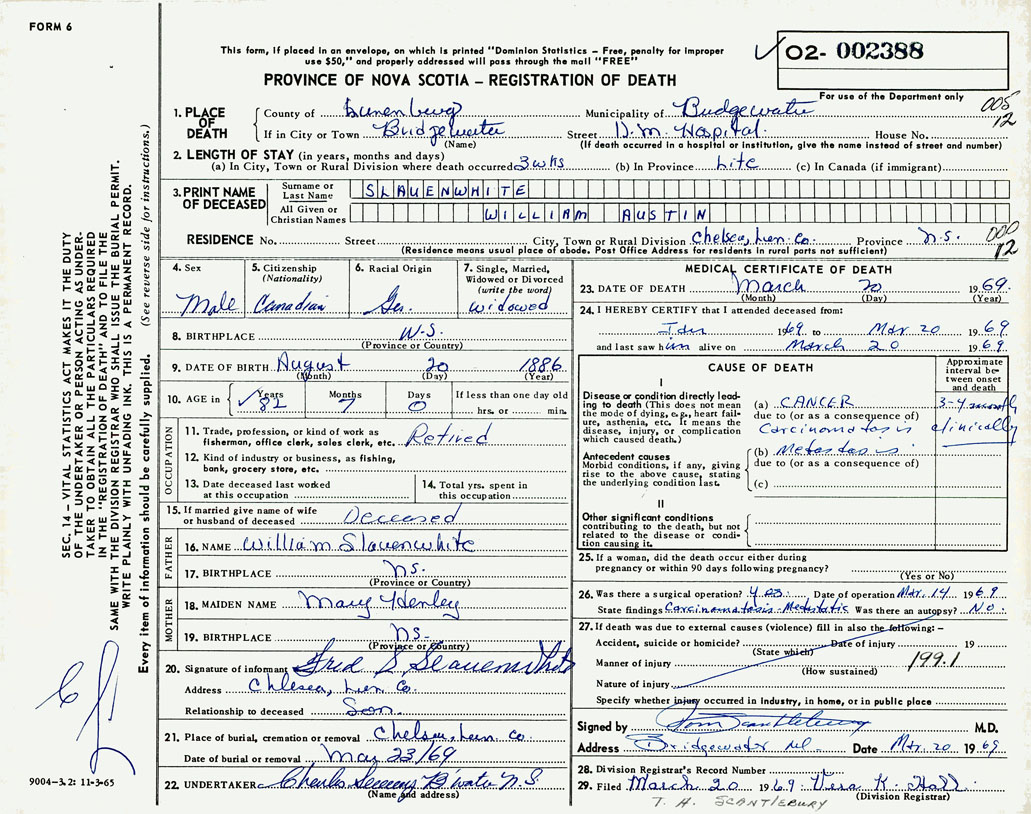 FORM 6
This form, if placed in an envelope, on which is printed "Dominion Statistics – Free, penalty for improper
use $50," and properly addressed will pass through the mail "FREE"
PROVINCE OF NOVA SCOTIA – REGISTRATION OF DEATH
02- 002388
For use of the Department only
005
12
1. PLACE OF DEATH
County of Lunenburg Municipality of Bridgewater
If in City or Town Bridgewater Street D. M. Hospital House No.
(Name) (If death occurred in a hospital or institution, give the name instead of street and number)
2. LENGTH OF STAY (in years, months and days)
(a) In City, Town or Rural Division where death occurred 3 wks (b) In Province Life (c) In Canada (if immigrant)
3. PRINT NAME OF DECEASED
Surname or Last Name SLAUENWHITE
All Given or Christian Names WILLIAM AUSTIN
RESIDENCE No. Street City, Town or Rural Division Chelsea, Lun. Co. Province N.S.
(Residence means usual place of abode. Post Office Address for residents in rural parts not sufficient)
000
12
4. Sex
Male
5. Citizenship (Nationality)
Canadian
6. Racial Origin
Ger.
7. Single, Married, Widowed or Divorced (write the word)
Widowed
8. BIRTHPLACE N.S.
(Province or Country)
9. DATE OF BIRTH August 20 1886
(Month) (Day) (Year)
10. AGE in Years Months Days If less than one day old
82 7 0 hrs. or min.
OCCUPATION
11. Trade, profession, or kind of work as
fisherman, office clerk, sales clerk, etc. Retired
12. Kind of industry or business, as fishing,
bank, grocery store, etc.
13. Date deceased last worked
at this occupation
14. Total yrs. spent in
this occupation
15. If married give name of wife
or husband of deceased Deceased
FATHER
16. NAME William Slauenwhite
17. BIRTHPLACE N.S.
(Province or Country)
MOTHER
18. MAIDEN NAME Mary Henley
19. BIRTHPLACE N.S.
(Province or Country)
20. Signature of informant Fred S Slauenwhite
Address Chlesea, Lun Co.
Relationship to deceased Son
21. Place of burial, cremation or removal Chelsea, Lun Co
Date of burial or removal Mar 23/69
22. UNDERTAKER Charles B'water N.S.
(Name and address)
MEDICAL CERTIFICATE OF DEATH
23. DATE OF DEATH March 20 1969
(Month) (Day) (Year)
24. I HEREBY CERTIFY that I attended deceased from:
1969 to Mar 20 1969
and last saw him alive on March 20 1969
CAUSE OF DEATH
Approximate interval between onset and death
I
Disease or condition directly leading to death (This does not mean
the mode of dying, e.g., heart failure, asthenia, etc. It means the
disease, injury, or complication
which caused death.)
(a) CANCER
3-4 months
clinically
due to (or as a consequence of)
Carcinomatosis
Antecedent causes
Morbid conditions, if any, giving
rise to the above cause, stating
the underlying condition last.
(b) Metastasis
due to (or as a consequence of)
(c)
II
Other significant conditions
contributing to the death, but not
related to the disease or condition causing it.
25. If a woman, did the death occur either during
pregnancy or within 90 days following pregnancy?
(Yes or No)
26. Was there a surgical operation? Yes Date of operation Mar. 14 1969
State findings Carcinomatosis - Metastatic Was there an autopsy? No.
27. If death was due to external causes (violence) fill in also the following: –
Accident, suicide or homicide? Date of injury 19
(State which)
Manner of injury 199.1
(How sustained)
Nature of injury
Specify whether injury occurred in Industry, in home, or in public place
Signed by Tom Scantlebury M.D.
Address Bridgewater Date Mar. 20 1969
28. Division Registrar's Record Number
29. Filed March 20 1969 Vera K. Hall
(Division Registrar)
T. H. SCANTLEBURY
SEC. 14 – VITAL STATISTICS ACT MAKES IT THE DUTY
OF THE UNDERTAKER OR PERSON ACTING AS UNDER-
TAKER TO OBTAIN ALL THE PARTICULARS REQUIRED
IN THE "REGISTRATION OF DEATH" AND TO FILE THE
SAME WITH THE DIVISION REGISTRAR WHO SHALL ISSUE THE BURIAL PERMIT.
WRITE PLAINLY WITH UNFADING INK. THIS IS A PERMANENT RECORD.
Every item of information should be carefully supplied. (See reverse side for instructions.)
9004-3.2: 11-3-65